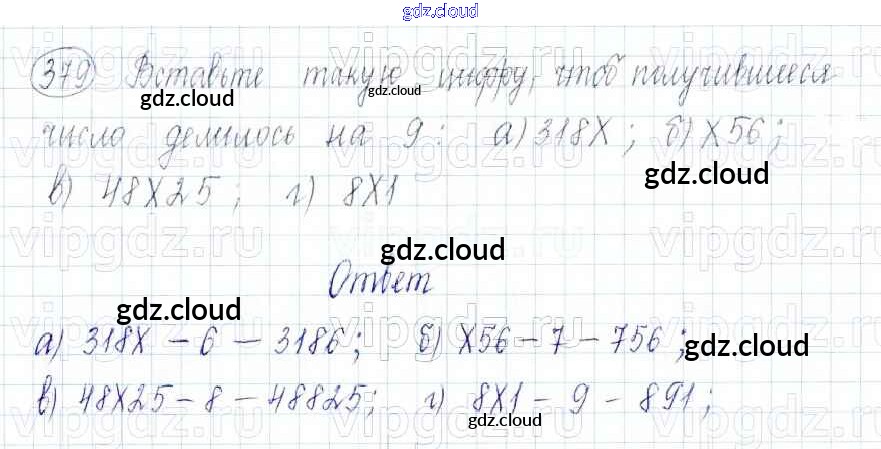 gdz.cloud
379 Вставьте такую цифру, чтоб получившееся
gdz.cloud gdz.cloud
число делилось на 9: а) 318X; б) X56;
gdz.cloud
в) 48X25; г) 8X1
vipgdz.ru vipgdz.ru vipgdz.ru
gdz.cloud
Ответ
gdz.cloud
а) 318X - 6 - 3186; б) X56 - 7 - 756;
gdz.cloud
в) 48X25 - 8 - 48825; г) 8X1 - 9 - 891;
gdz.cloud